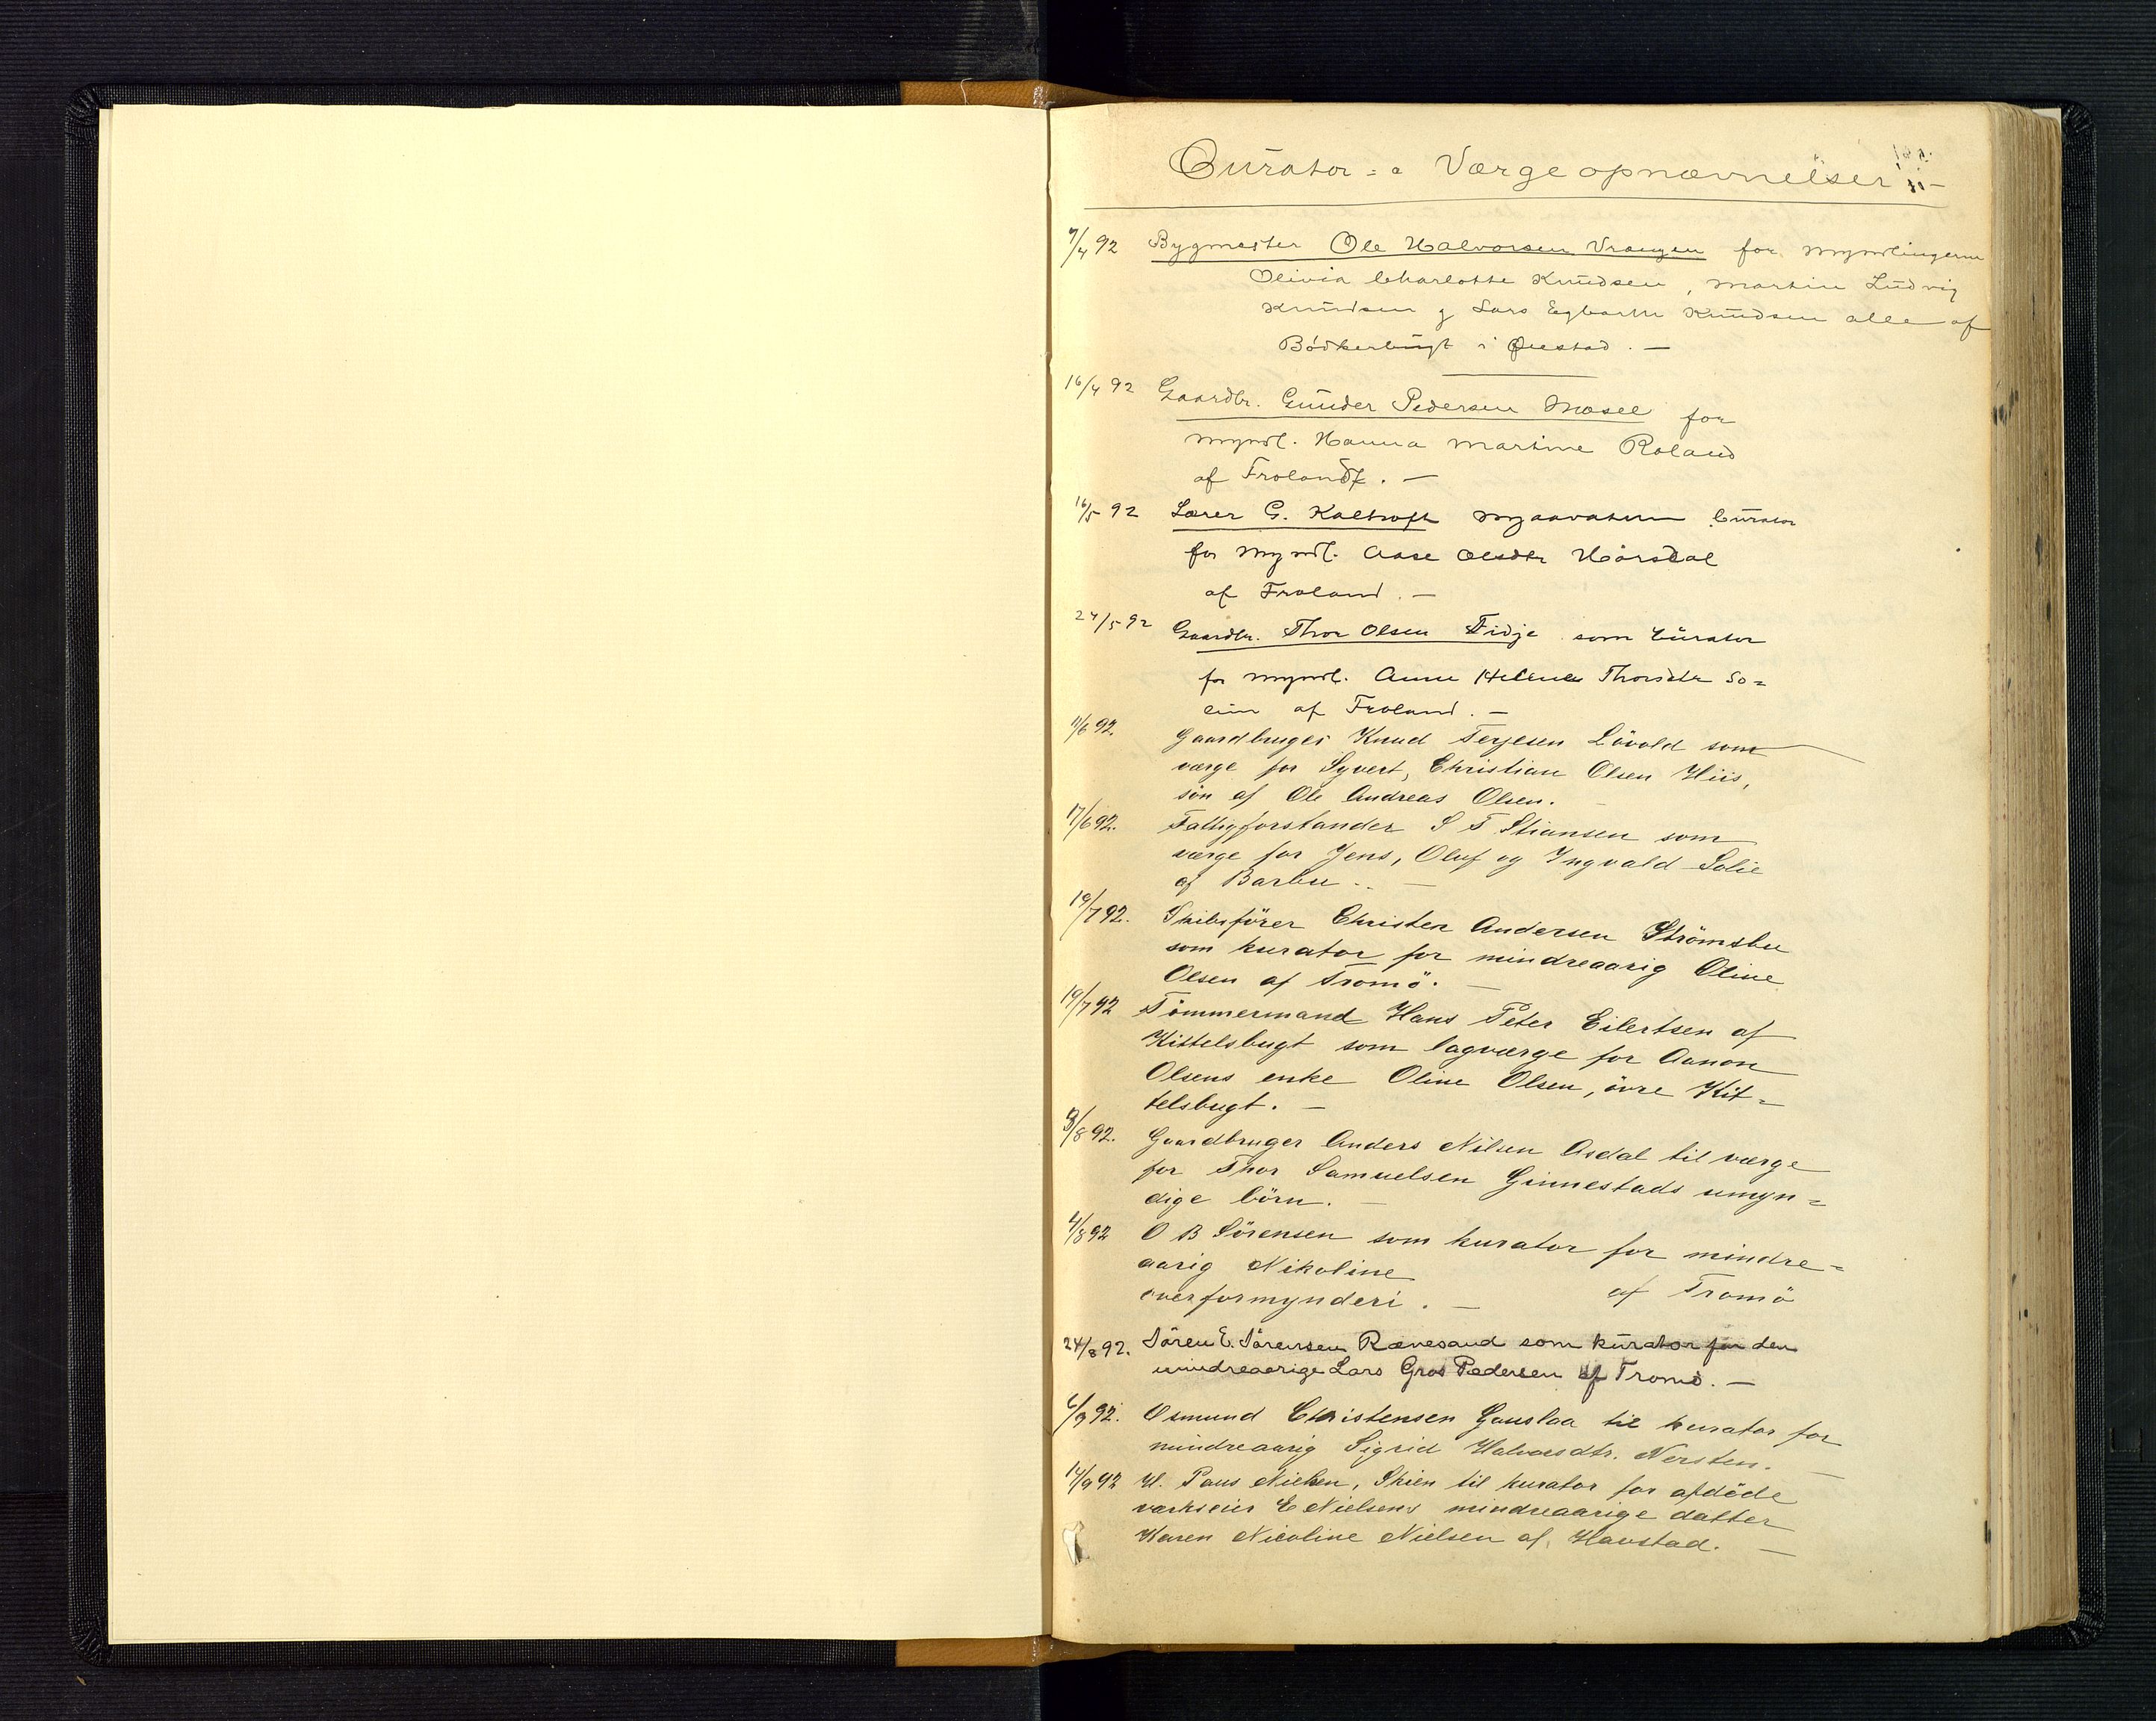 Curator = a Værgeopnævnelser. —
7/4 92 Bygmester Ole Halvorsen Vrangen for Myndlingerne
Olivia Charlotte Knudsen, Martin Ludvig
Knudsen g Lars Egbarth Knudsen alle af
Bödkerbugt i Øiestad. —
16/4 92 Gaardbr. Gunder Pedersen Mosel for
myndl. Hanna Martine Roland
af Froland. —
16/5 92 Lærer G. Kaltoft Curator
for Myndl. Aase Olsdtr
af Froland. —
24/5 92 Gaardbr. Thor Olsen Fidje som Curator
for myndl. Anne Helene Thorsdtr So=
lim af Froland. —
11/6 92. Gaardbruger Knud Terjesen Lövold som
værge for Syvert, Christian Olsen Hiis,
sön af Ole Andreas Olsen. —
17/6 92. Fattigforstander S T Stiansen som
værge for Jens, Oluf og Ingvald Solie
af Barbu. —
19/7 92. Skibsförer Christen Andersen Strömsbu
som kurator for mindreaarig Oline
Olsen af Tromö. —
19/7 92 Tömmermand Hans Peter Eilertsen af
Kittelsbugt som lagværge for Aanon
Olsens enke Oline Olsen, övre Kit=
telsbugt. —
3/8 92. Gaardbruger Anders Nilsen Asdal til værge
for Thor Samuelsen Ginnestads umyn=
dige börn. —
4/8 92 O B Sörensen som kurator for mindre=
aarig Nikoline af Tromö
overformynderi. —
24/8 92. Sören E. Sörensen Rævesand som kurator for den
mindreaarige Lars Gros Pedersen af Tromö. —
6/9 92. Osmund Christensen Gauslaa til kurator for
mindreaarig Sigrid Halvorsdtr. Nersten. —
14/9 92 H. Paus Nielsen, Skien til kurator for afdöde
værkseier E Nielsens mindreaarige datter
Karen Nicoline Nielsen af Havstad. —